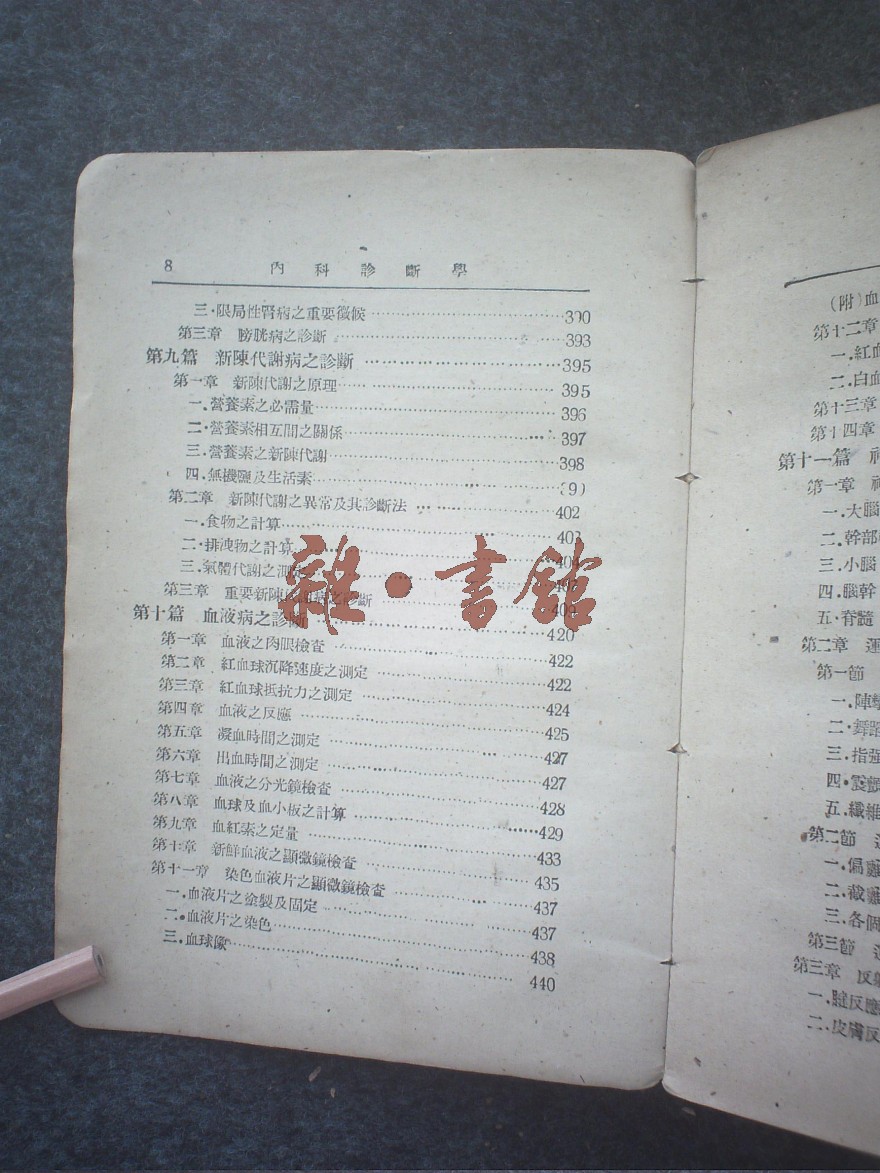 8 內科診斷學
三.限局性腎病之重要徵候 390
第三章 膀胱病之診斷 393
第九篇 新陳代謝病之診斷 395
第一章 新陳代謝之原理 395
一.營養素之必需量 396
二.營養素相互間之關係 397
三.營養素之新陳代謝 398
四.無機鹽及生活素
第二章 新陳代謝之異常及其診斷法 402
一.食物之計算 403
二.排洩物之計算
三.氣體代謝之測定
第三章 重要新陳代謝病之診斷
第十篇 血液病之診斷 420
第一章 血液之肉眼檢查 422
第二章 紅血球沉降速度之測定 422
第三章 紅血球抵抗力之測定 424
第四章 血液之反應 425
第五章 凝血時間之測定 427
第六章 出血時間之測定 427
第七章 血液之分光鏡檢查 428
第八章 血球及血小板之計算 429
第九章 血紅素之定量 433
第十章 新鮮血液之顯微鏡檢查 435
第十一章 染色血液片之顯微鏡檢查 437
一.血液片之塗製及固定 437
二.血液片之染色 438
三.血球像 440
雜·書館
(附)血
第十二章
一.紅血
二.白血
第十三章
第十四章
第十一篇 神
第一章 神
一.大腦
二.幹部
三.小腦
四.腦幹
五.脊髓
第二章 運
第一節
一.陣攣
二.舞蹈
三.指
四.震顫
五.纖維
第二節
一.偏癱
二.截癱
三.各個
第三節
第三章 反射
一.腱反應
二.皮膚反